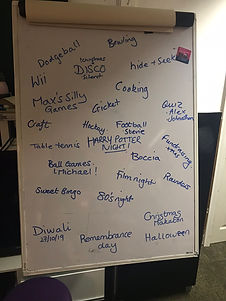 Dodgeball
Bowling
Wii
Christmas
DISCO
Silent
hide + Seek
Max's Silly
Games
Cooking
Cricket
Quiz
- Alex
- Johnathan
Craft
Hockey
Football
Stevie
Table tennis
HARRY POTTER
NIGHT!
Fundraising
Ball Games
Michael!
Boccia
Sweet Bingo
Film night
80s night
Diwali
27/10/19
Remembrance
day
Christmas
Makaton
Halloween